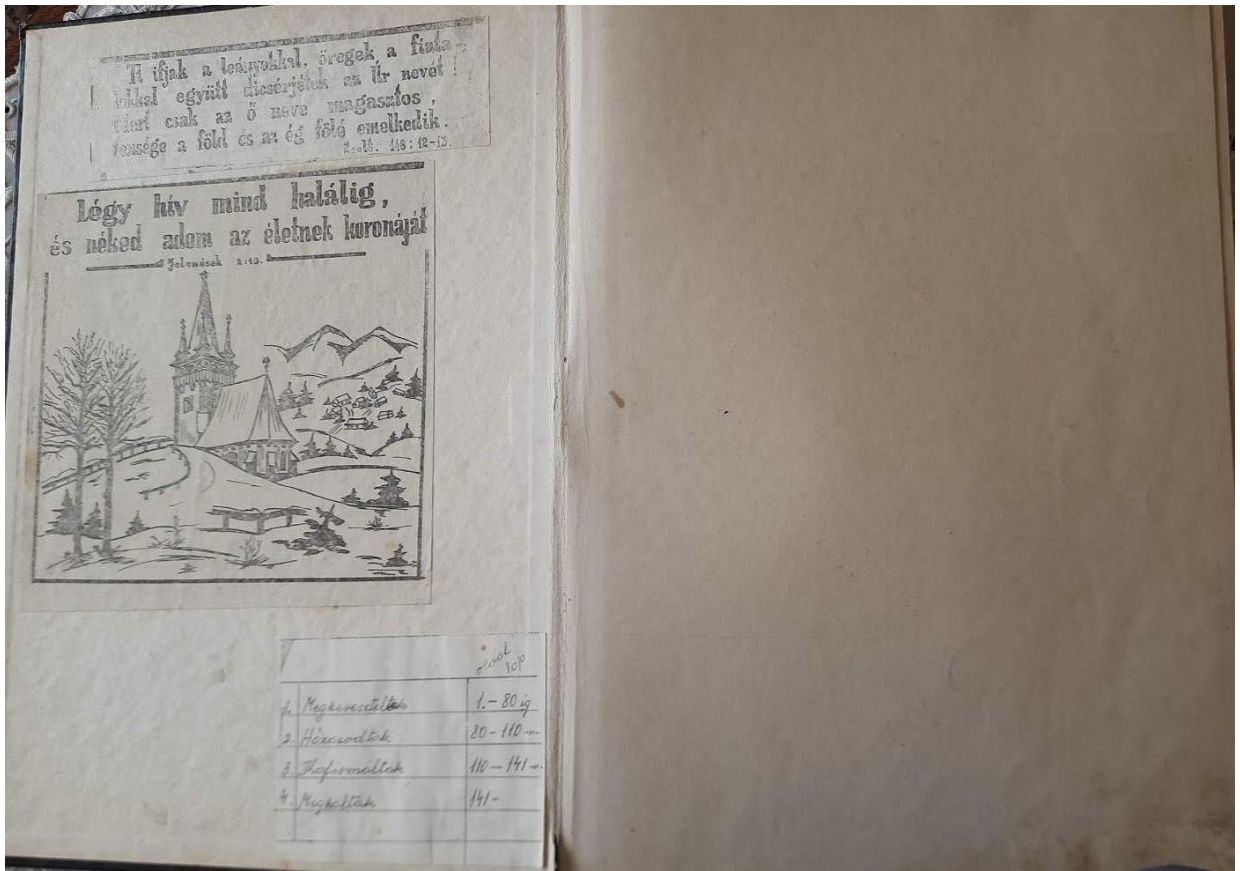 Ti ifjak a leányokkal, öregek a fiata-
lokkal együtt dicsérjétek az Úr nevét!
Mert csak az ő neve magasztos,
fensége a föld és az ég fölé emelkedik.
Zsolt. 148:12-13.
Légy hív mind halálig,
és néked adom az életnek koronáját
Jelenések 2:10.
1. Megkereszteltek 1.-80 ig
2. Házasodtak 80-110-"-
3. Konfirmáltak 110-141-"-
4. Meghaltak 141-